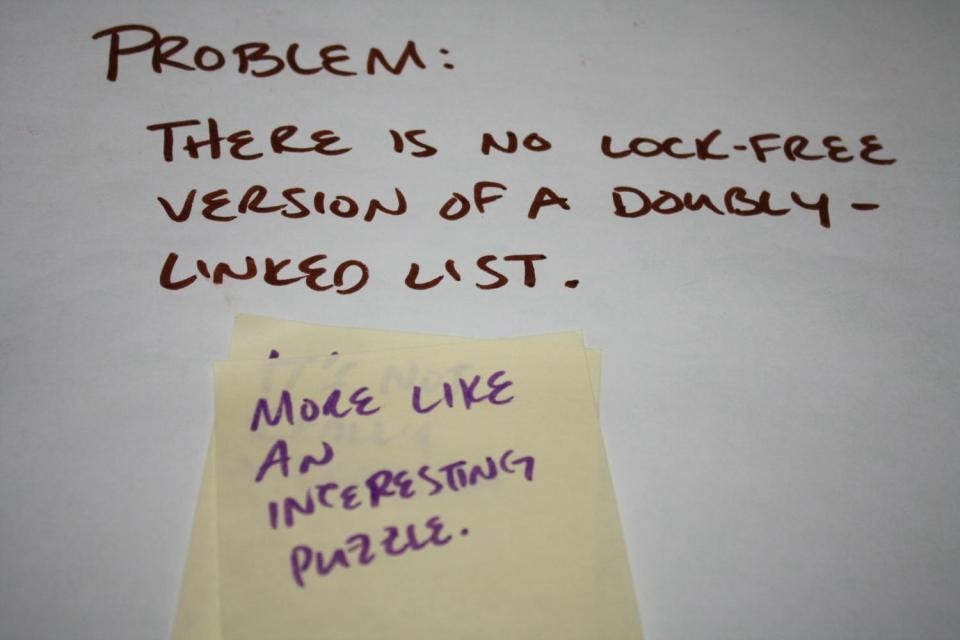 PROBLEM:
THERE IS NO LOCK-FREE
VERSION OF A DOUBLY-
LINKED LIST.
MORE LIKE
AN
INTERESTING
PUZZLE.